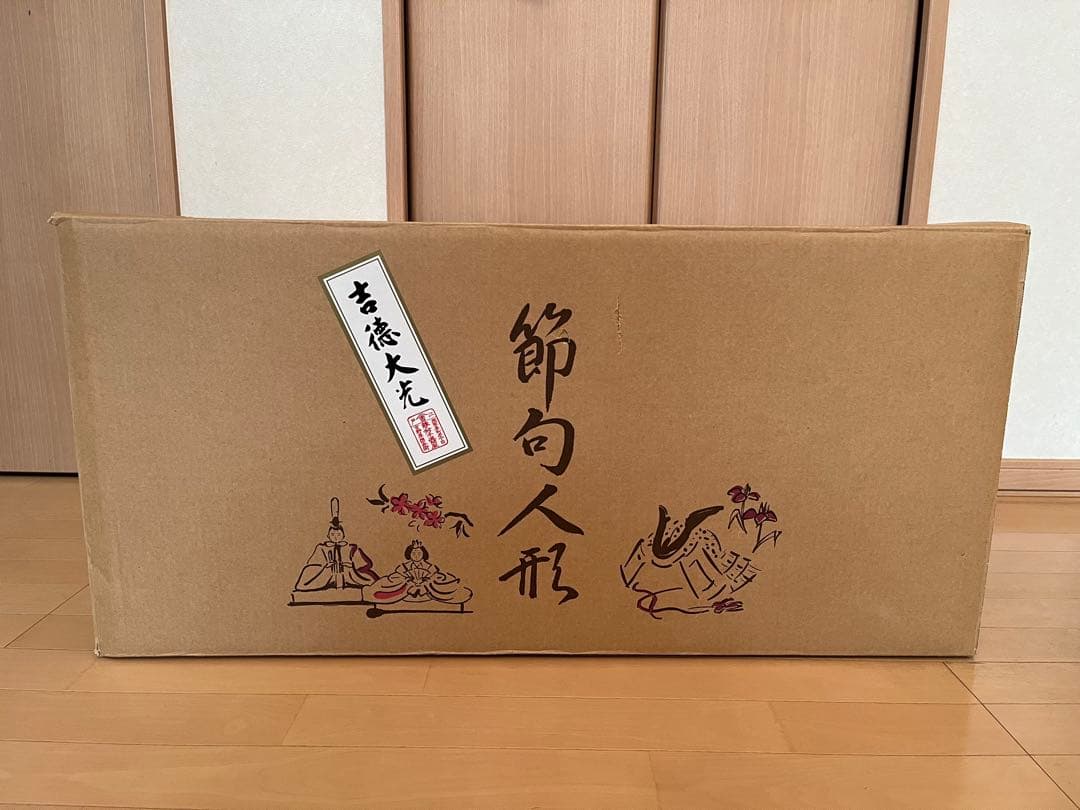 吉德大光
節句人形